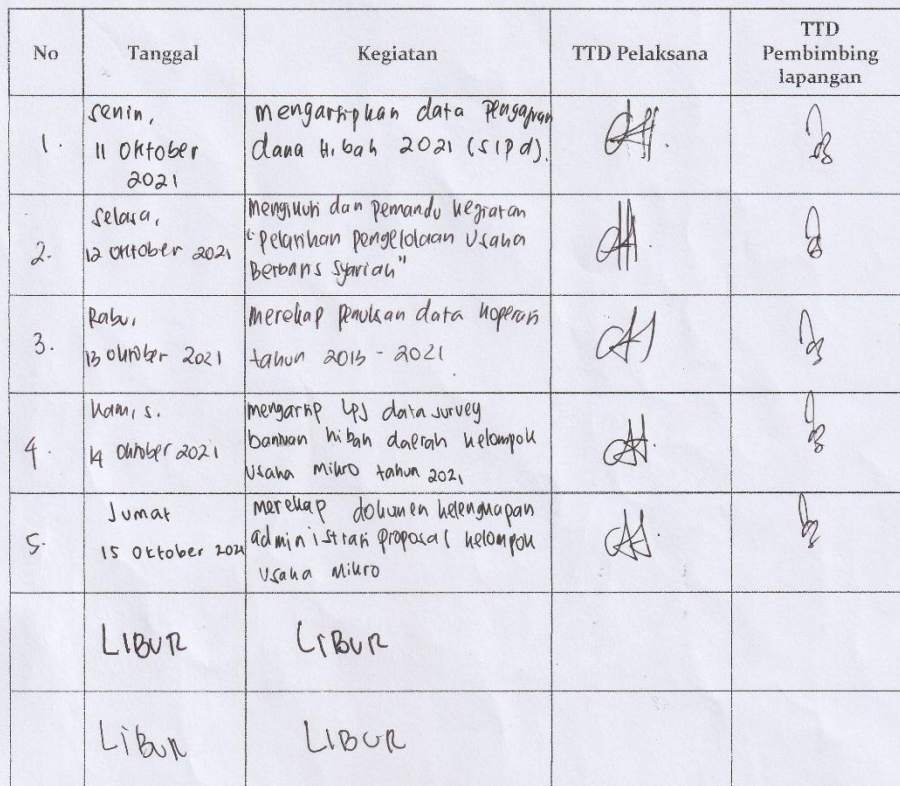 No Tanggal Kegiatan TTD Pelaksana TTD Pembimbing lapangan
1. Senin, 11 Oktober 2021
mengarsipkan data pengajuan
dana Hibah 2021 (SIPd).
2. Selasa, 12 Oktober 2021
Mengikuti dan pemandu kegiatan
"Pelatihan pengelolaan Usaha
Berbasis Syariah"
3. Rabu, 13 Oktober 2021
Merekap penulisan data koperasi
tahun 2015 - 2021
4. Kamis. 14 Oktober 2021
mengarsip LPJ data survey
bantuan hibah daerah kelompok
Usaha Mikro tahun 2021
5. Jumat 15 Oktober 2021
merekap dokumen kelengkapan
administrasi proposal kelompok
Usaha Mikro
LIBUR LIBUR
LIBUR LIBUR